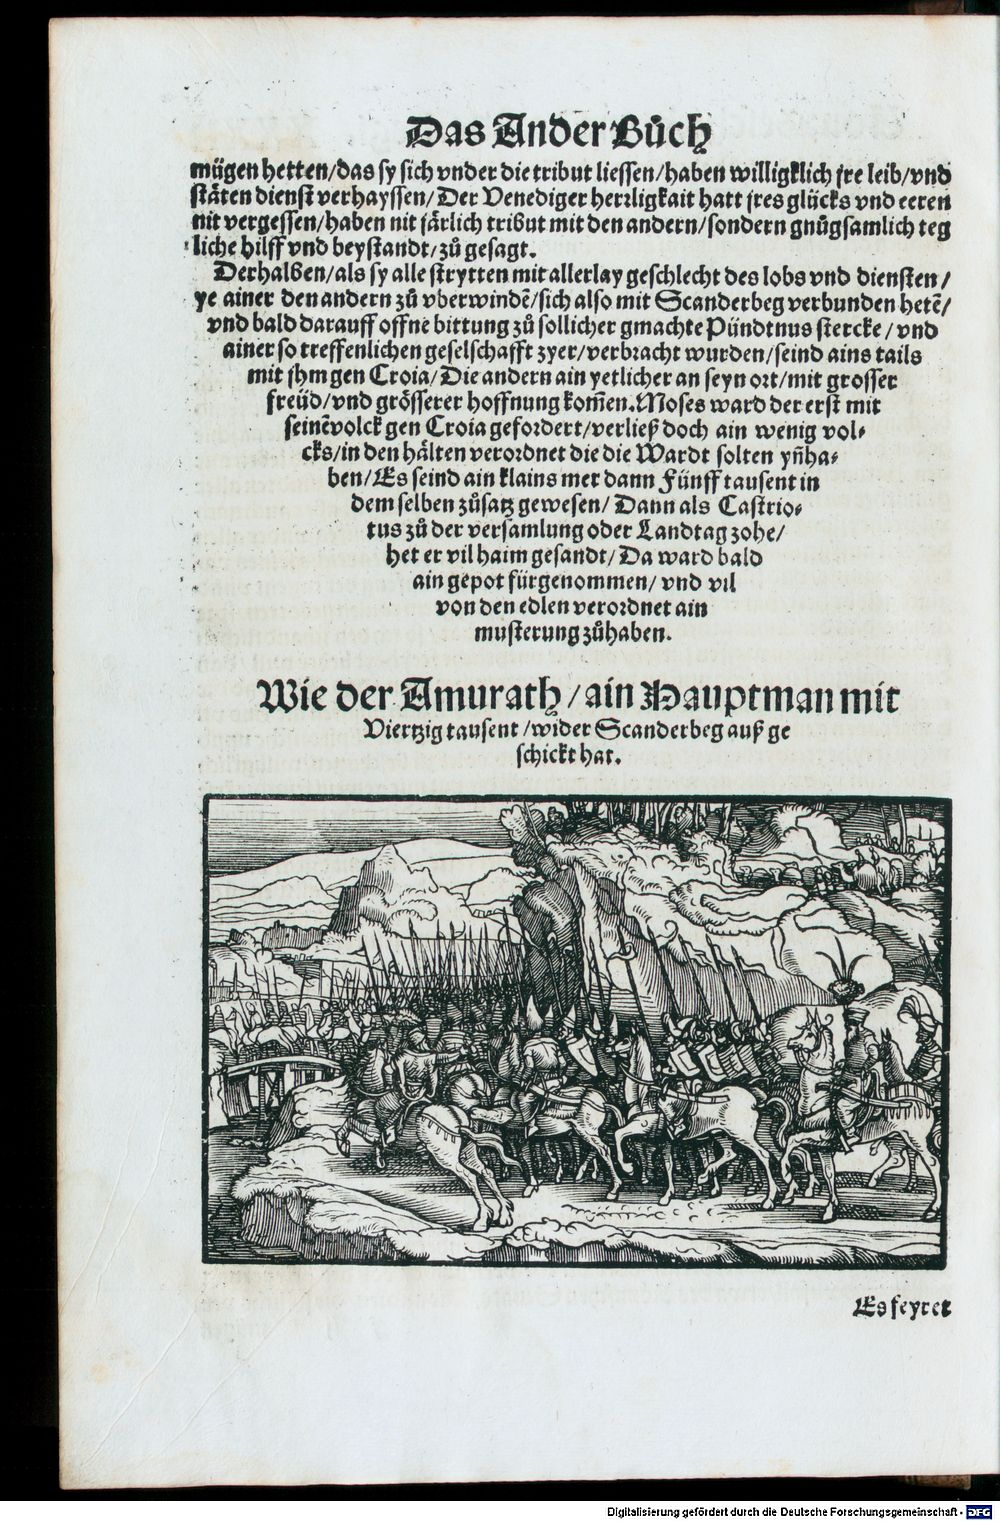 Das Ander Bůch
mügen hetten/das sy sich vnder die tribut liessen/haben willigklich jre leib/vnd
stäten dienst verhayssen/Der Venediger herrligkait hatt jres glücks vnd eeren
nit vergessen/haben nit järlich tribut mit den andern/sondern gnůgsamlich teg
liche hilff vnd beystandt/zů gesagt.
Derhalben/als sy alle strytten mit allerlay geschlecht des lobs vnd diensten/
ye ainer den andern zů vberwindē/sich also mit Scanderbeg verbunden hetē/
vnd bald darauff offne bittung zů sollicher gmachte Pündtnus stercke/vnd
ainer so treffenlichen geselschafft zyer/verbracht wurden/seind ains tails
mit jhm gen Croia/Die andern ain yetlicher an seyn ort/mit grosser
freüd/vnd grösserer hoffnung kom̄en. Moses ward der erst mit
seinē volck gen Croia gefordert/verließ doch ain wenig vol-
cks/in den hälten verordnet die die Wardt solten yn̄ha-
ben/Es seind ain klains mer dann Fünff tausent in
dem selben zůsatz gewesen/Dann als Castrio-
tus zů der versamlung oder Landtag zohe/
het er vil haim gesandt/Da ward bald
ain gepot fürgenommen/vnd vil
von den edlen verordnet ain
musterung zůhaben.
Wie der Amurath/ain Hauptman mit
Viertzig tausent/wider Scanderbeg auß ge
schickt hat.
Es feyret
Digitalisierung gefördert durch die Deutsche Forschungsgemeinschaft - DFG